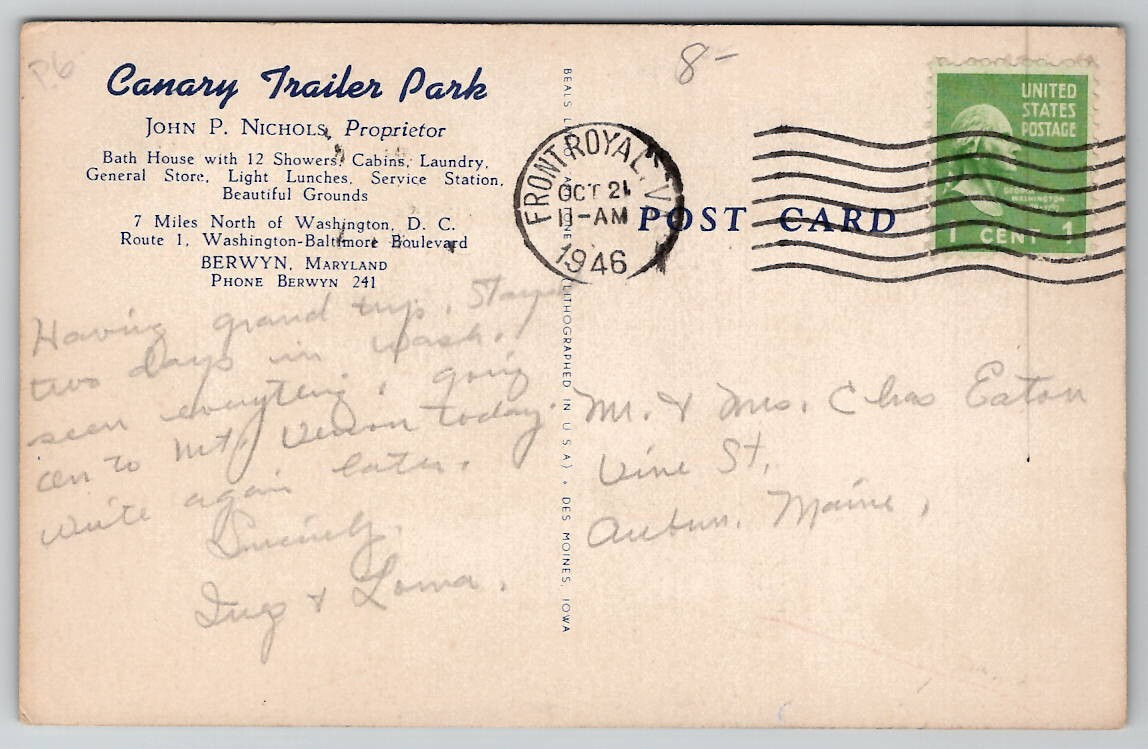 P6
8-
Canary Trailer Park
JOHN P. NICHOLS, Proprietor
Bath House with 12 Showers, Cabins, Laundry,
General Store, Light Lunches, Service Station,
Beautiful Grounds
7 Miles North of Washington, D. C.
Route 1, Washington-Baltimore Boulevard
BERWYN, MARYLAND
PHONE BERWYN 241
Having grand trip. Stayed
two days in Wash.
seen everything, going
on to Mt. Vernon today.
write again later.
Sincerely,
& Lorna.
BEALS (LITHOGRAPHED IN U.S.A) • DES MOINES, IOWA
FRONT ROYAL, V
OCT 21
11-AM
1946
POST CARD
UNITED
STATES
POSTAGE
GEORGE
WASHINGTON
1 CENT 1
Mr. & Mrs. Chas Eaton
Vine St,
Auburn, Maine,